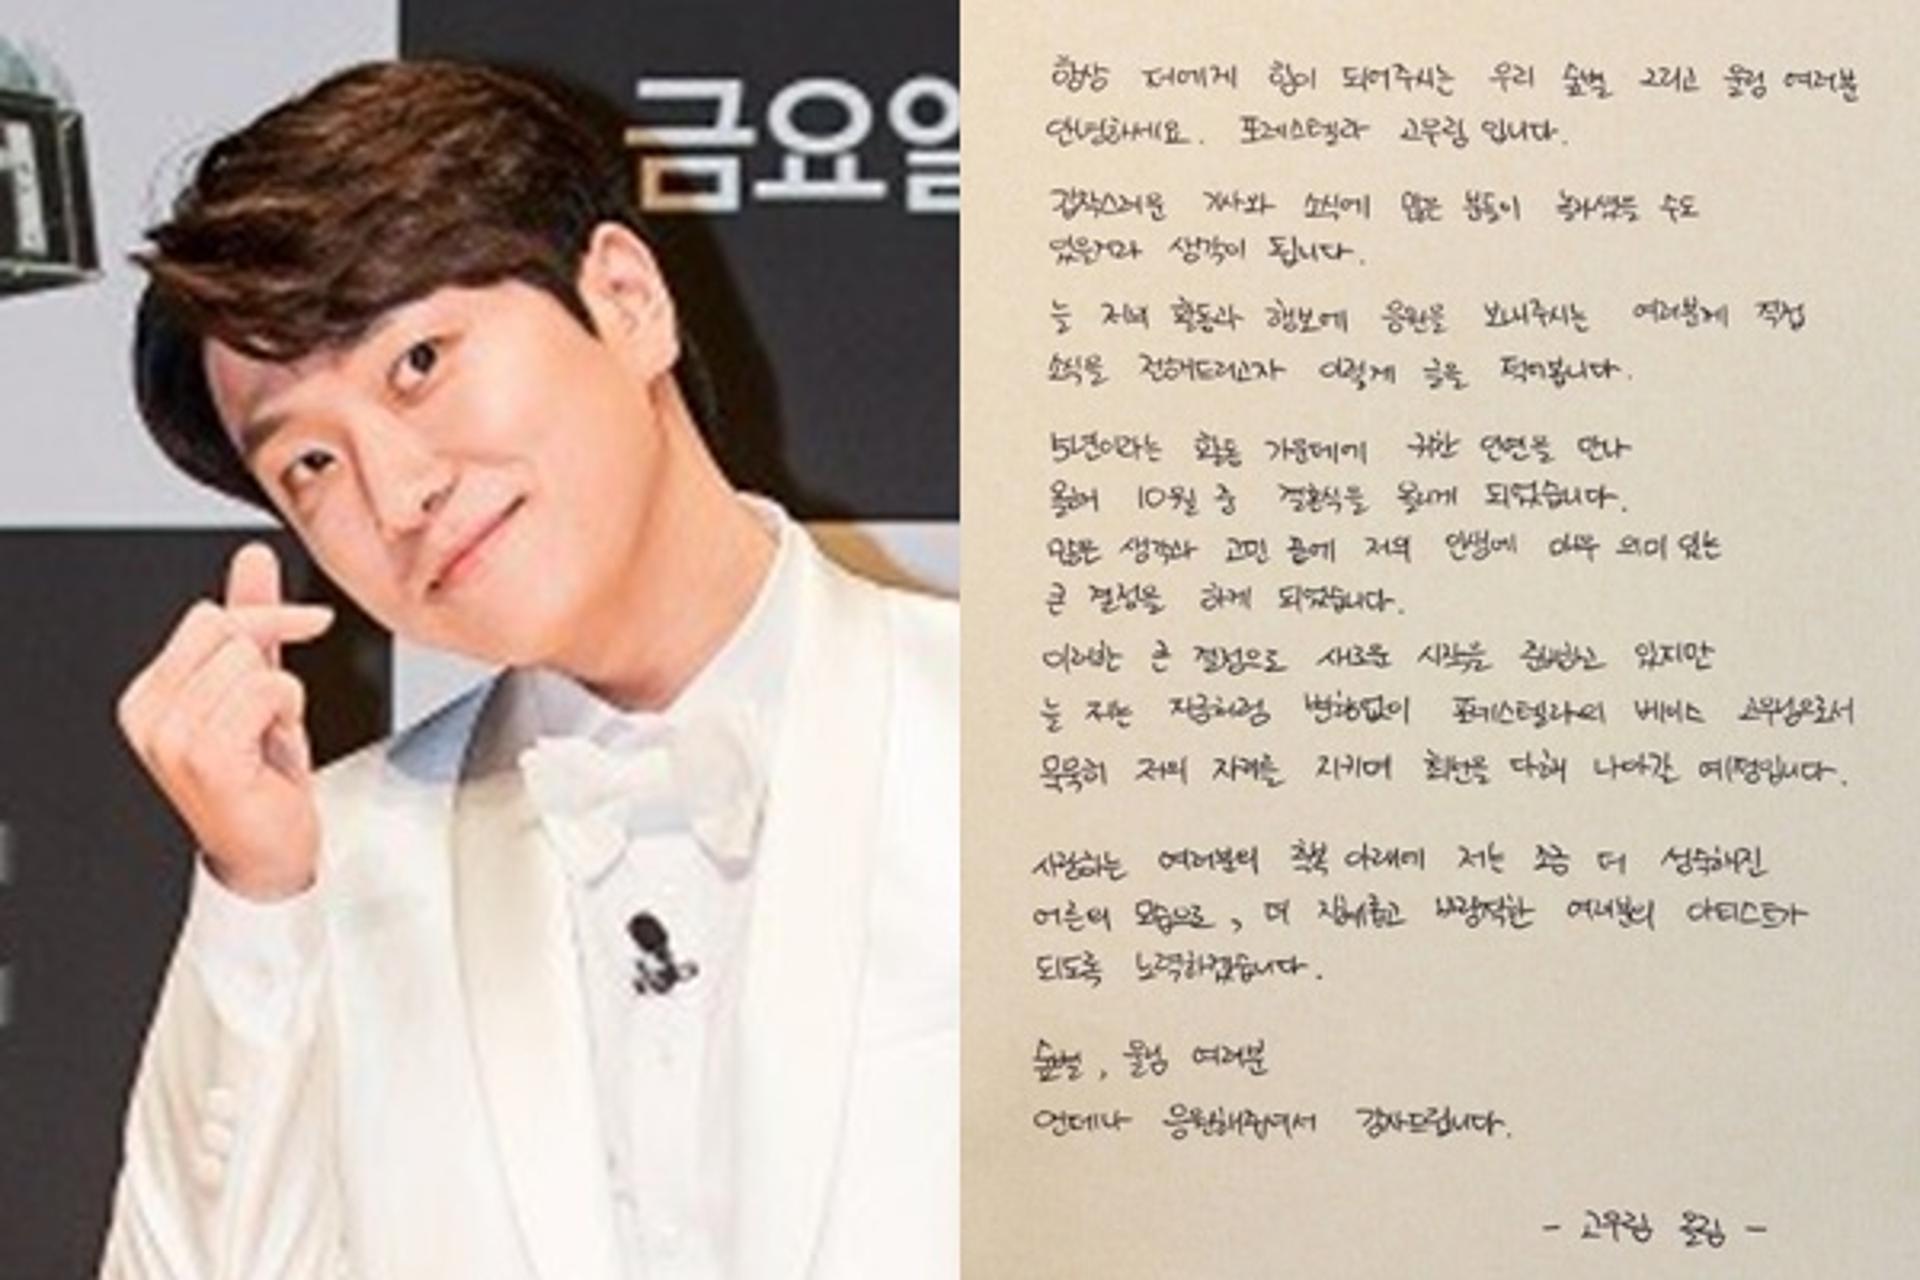 금요일
항상 저에게 힘이 되어주시는 우리 숲별 그리고 울림 여러분
안녕하세요. 포레스텔라 고우림 입니다.
갑작스러운 기사와 소식에 많은 분들이 놀라셨을 수도
있을거라 생각이 됩니다.
늘 저의 활동과 행보에 응원을 보내주시는 여러분께 직접
소식을 전해드리고자 이렇게 글을 적어봅니다.
5년이라는 활동 가운데에 귀한 인연을 만나
올해 10월 중 결혼식을 올리게 되었습니다.
많은 생각과 고민 끝에 저의 인생에 아주 의미 있는
큰 결정을 하게 되었습니다.
이러한 큰 결정으로 새로운 시작을 준비하고 있지만
늘 저는 지금처럼 변함없이 포레스텔라의 베이스 고우림으로서
묵묵히 저의 자리를 지키며 최선을 다해 나아갈 예정입니다.
사랑하는 여러분의 축복 아래에 저는 조금 더 성숙해진
어른의 모습으로, 더 지혜롭고 바람직한 여러분의 아티스트가
되도록 노력하겠습니다.
숲별, 울림 여러분
언제나 응원해주셔서 감사드립니다.
- 고우림 올림 -